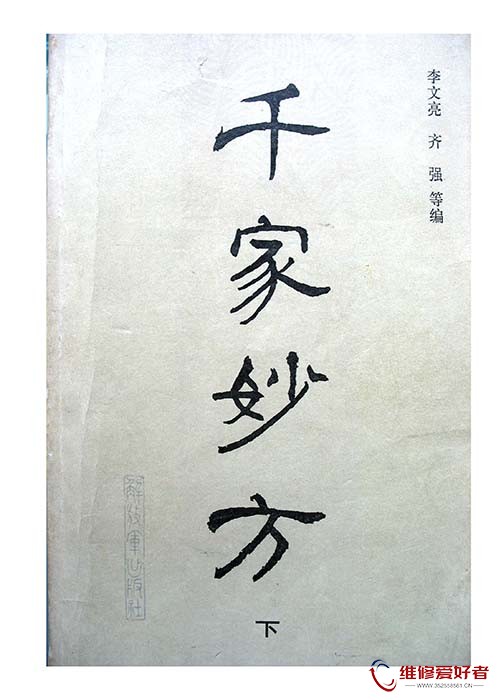 李文亮 齐 强 等编
千家妙方
下
解放军出版社
维修爱好者